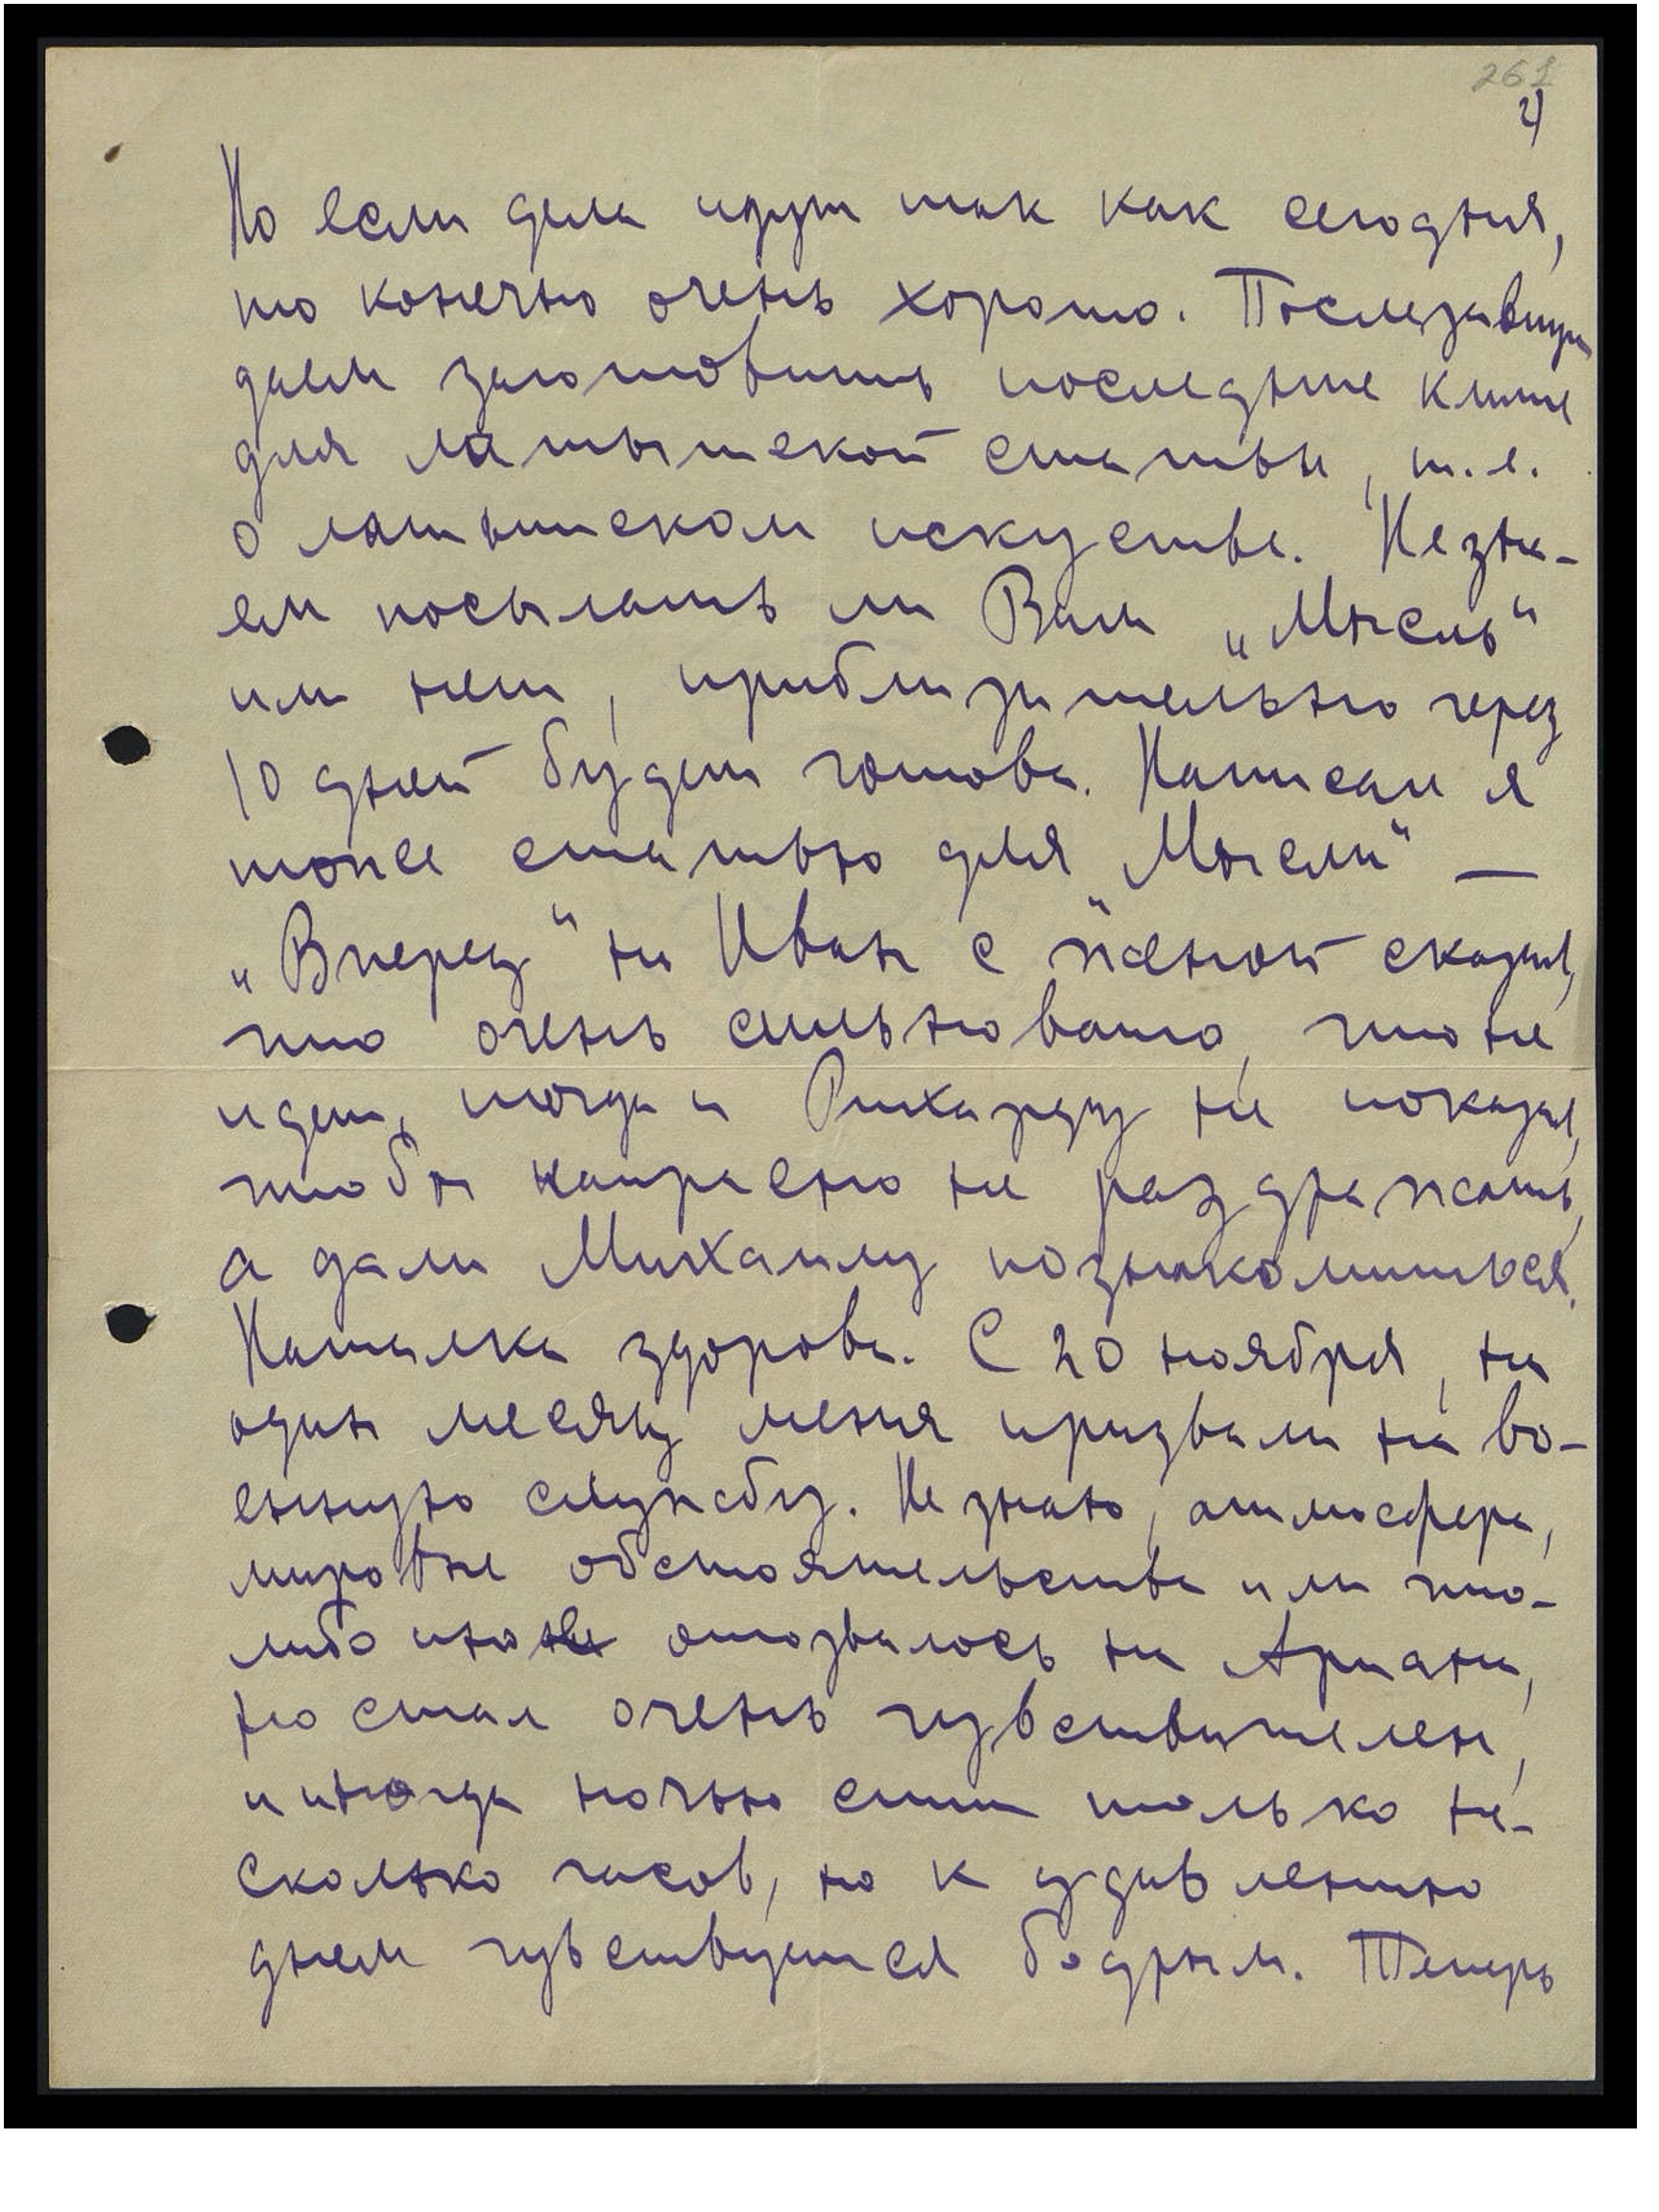 261
2)
Но если дела идут так как сегодня,
то конечно очень хорошо. Послезавтра
даем заготовить последние клише
для латышской статьи, т.е.
о латышском искустве. Незна-
ем посылать ли Вам „Мысль“
или нет, приблизительно через
10 дней будет готова. Написал я
тоже статью для „Мысли“ —
„Вперед“ но Иван с женой сказал,
что очень сильновато, что не
идет, тогда и Рихарду не показал,
чтобы напрасно не раздражать,
а дали Михаилу познакомиться.
Наталка здорова. С 20 ноября, на
один месяц меня призвали на во-
енную службу. Не знаю, атмосфера,
мировые обстоятельства или что-
либо иное отозвалось на Ариана,
но стал очень чувствителен,
и иногда ночью спит только не-
сколько часов, но к удивлению
днем чувствуется бодрым. Теперь